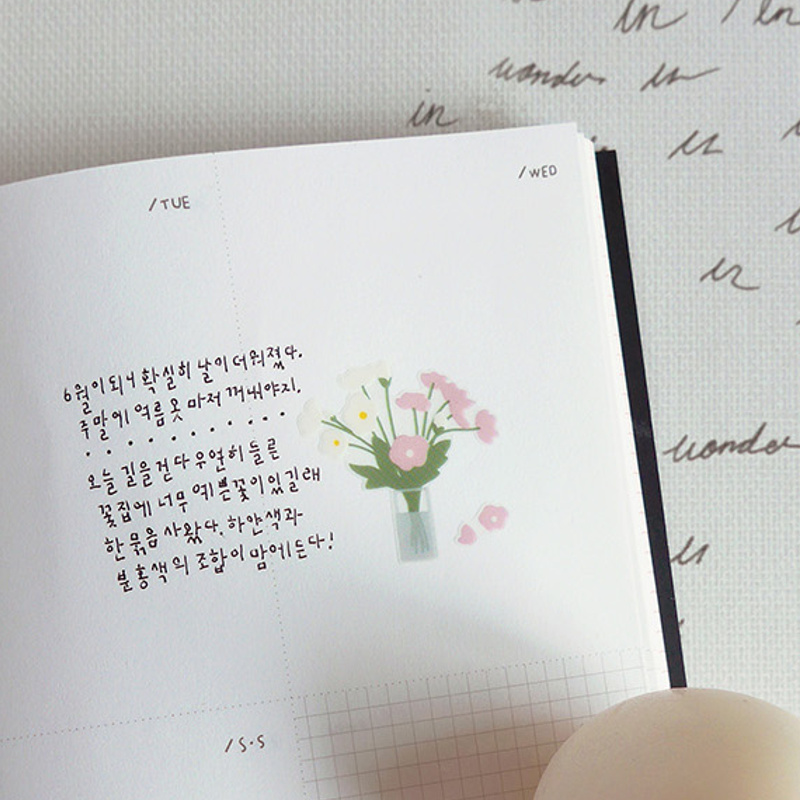 in / in
wonder in
in
in
/TUE
/WED
6월이 되니 확실히 날이 더워졌다.
주말에 여름옷 마저 꺼내야지.
오늘 길을 걷다 우연히 들른
꽃집에 너무 예쁜 꽃이 있길래
한 묶음 사왔다. 하얀색과
분홍색의 조합이 맘에 든다!
wonder
/S·S